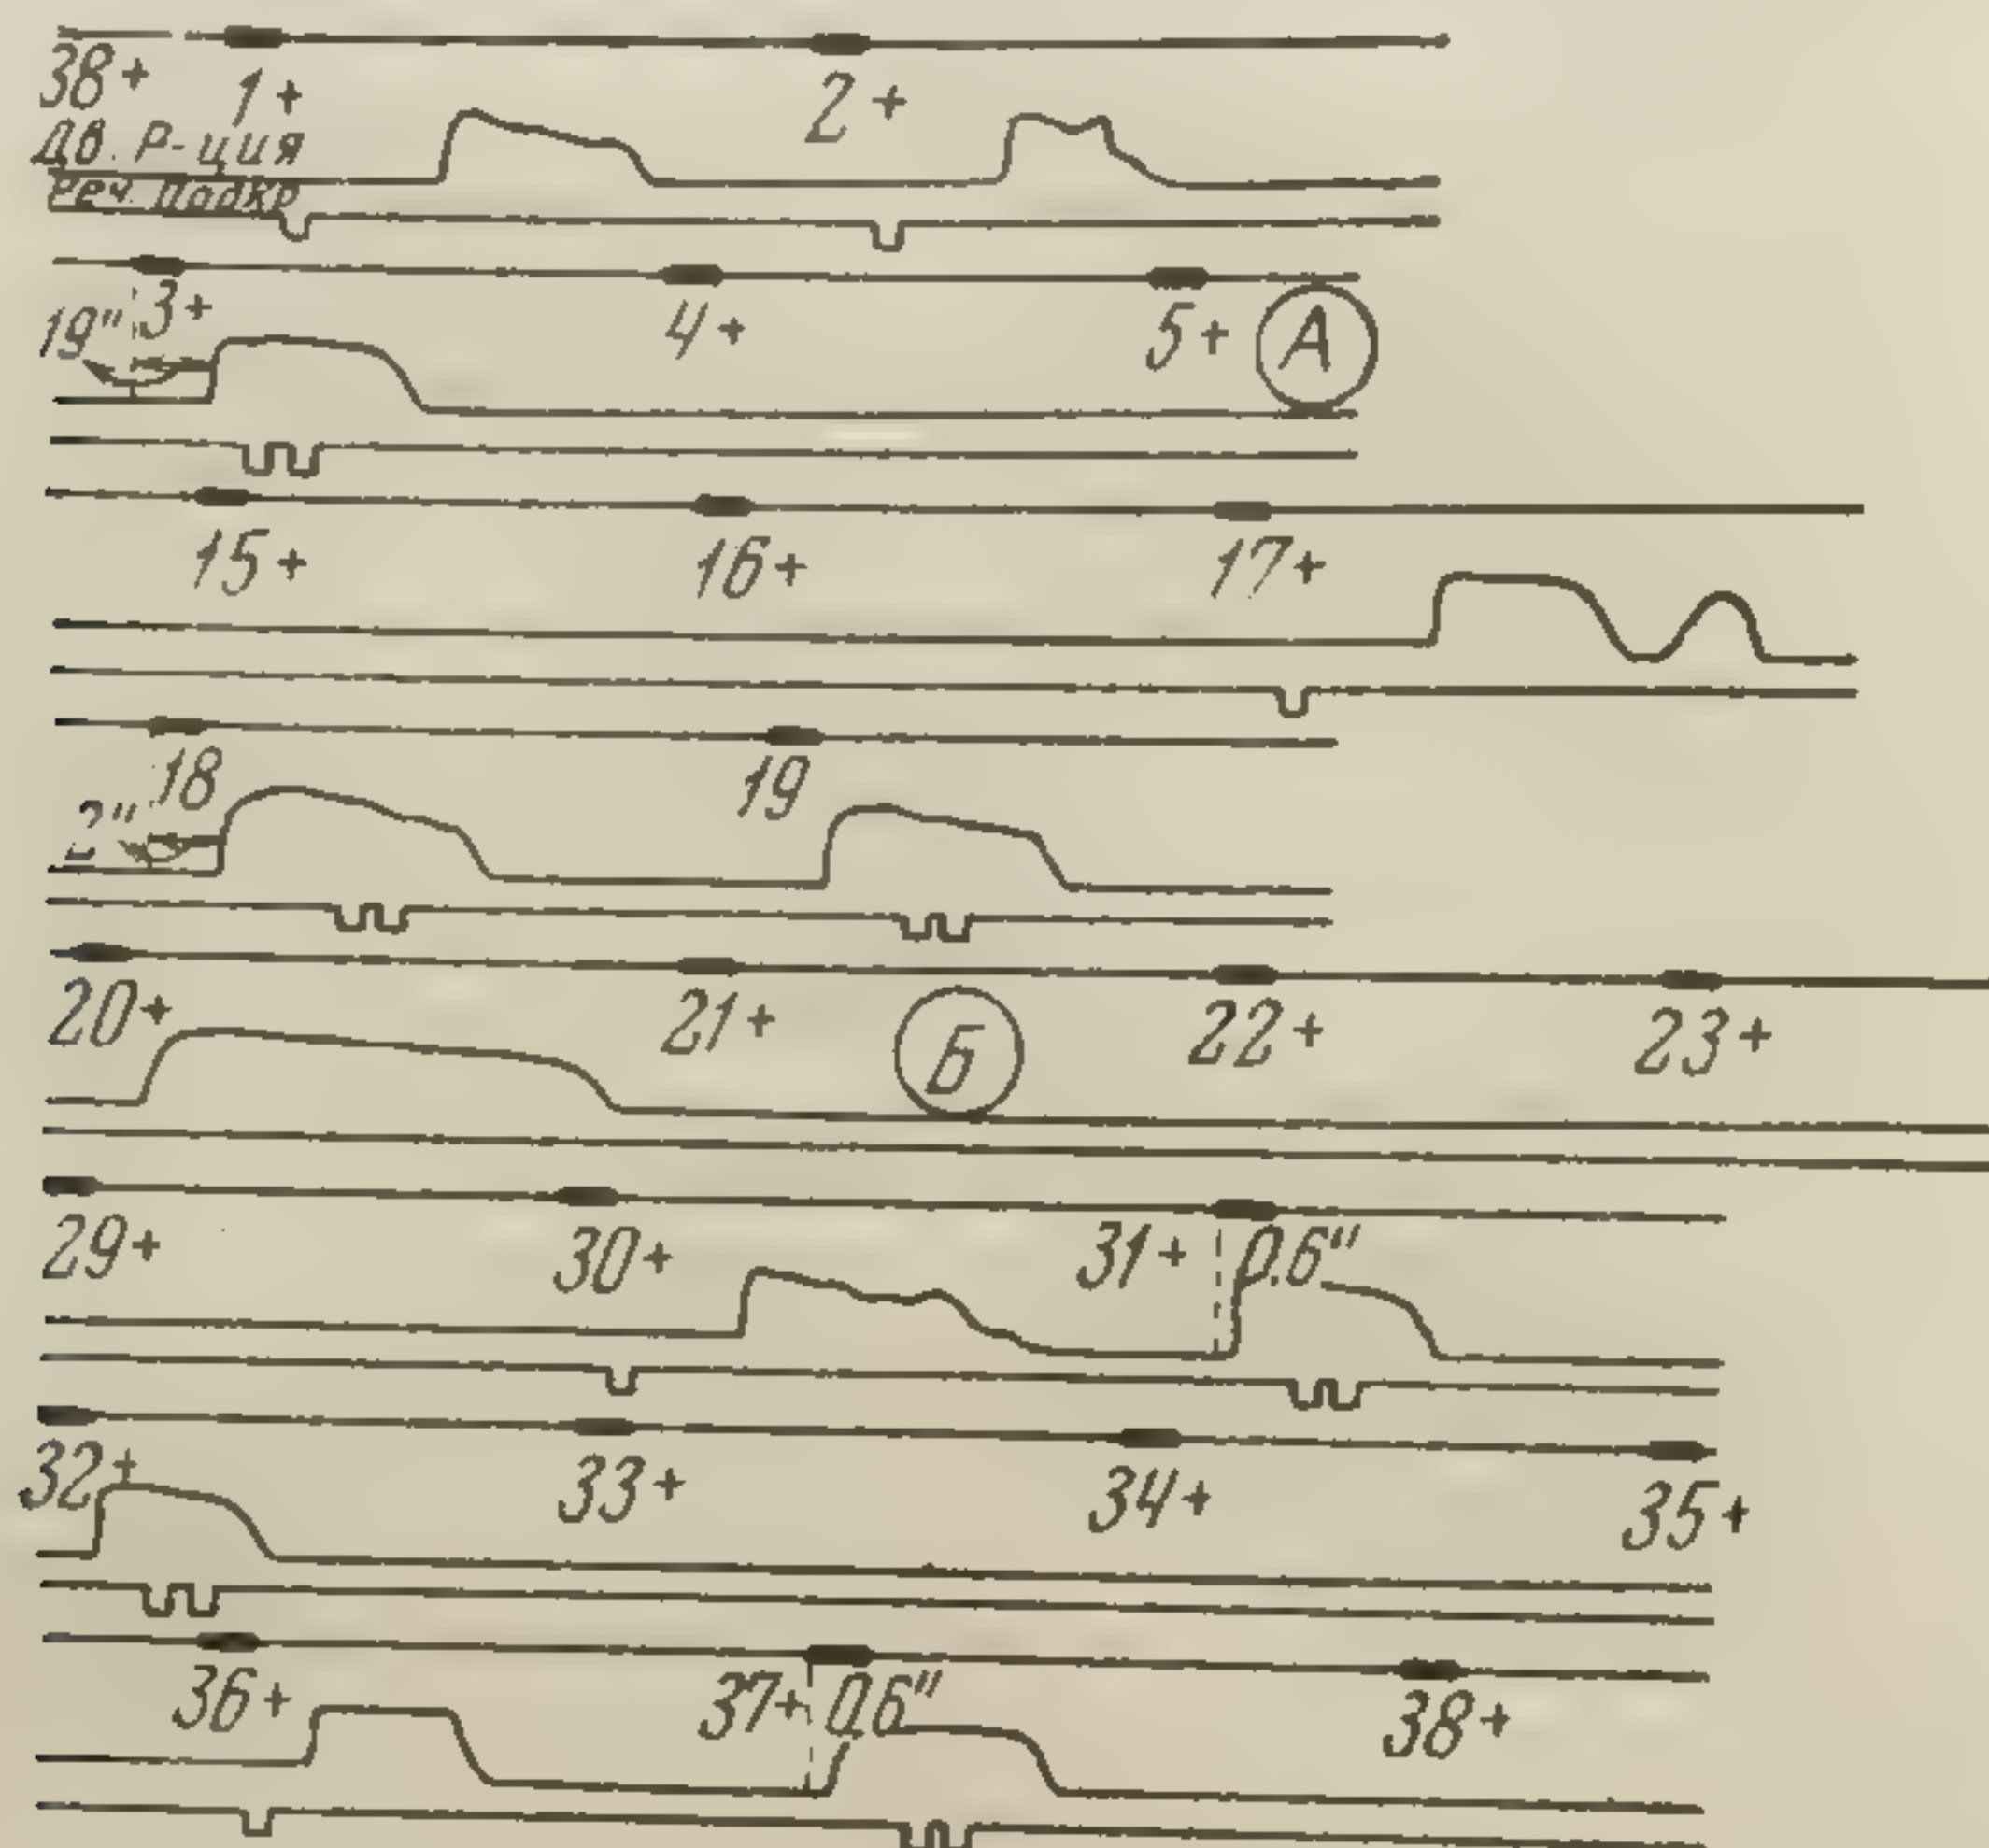 38+ 1+ 2+
Дв. Р-ция
Реч. Подкр
19" 3+ 4+ 5+ А
15+ 16+ 17+
18 19
2"
20+ 21+ Б 22+ 23+
29+ 30+ 31+ 0.6"
32+ 33+ 34+ 35+
36+ 37+ 0.6" 38+